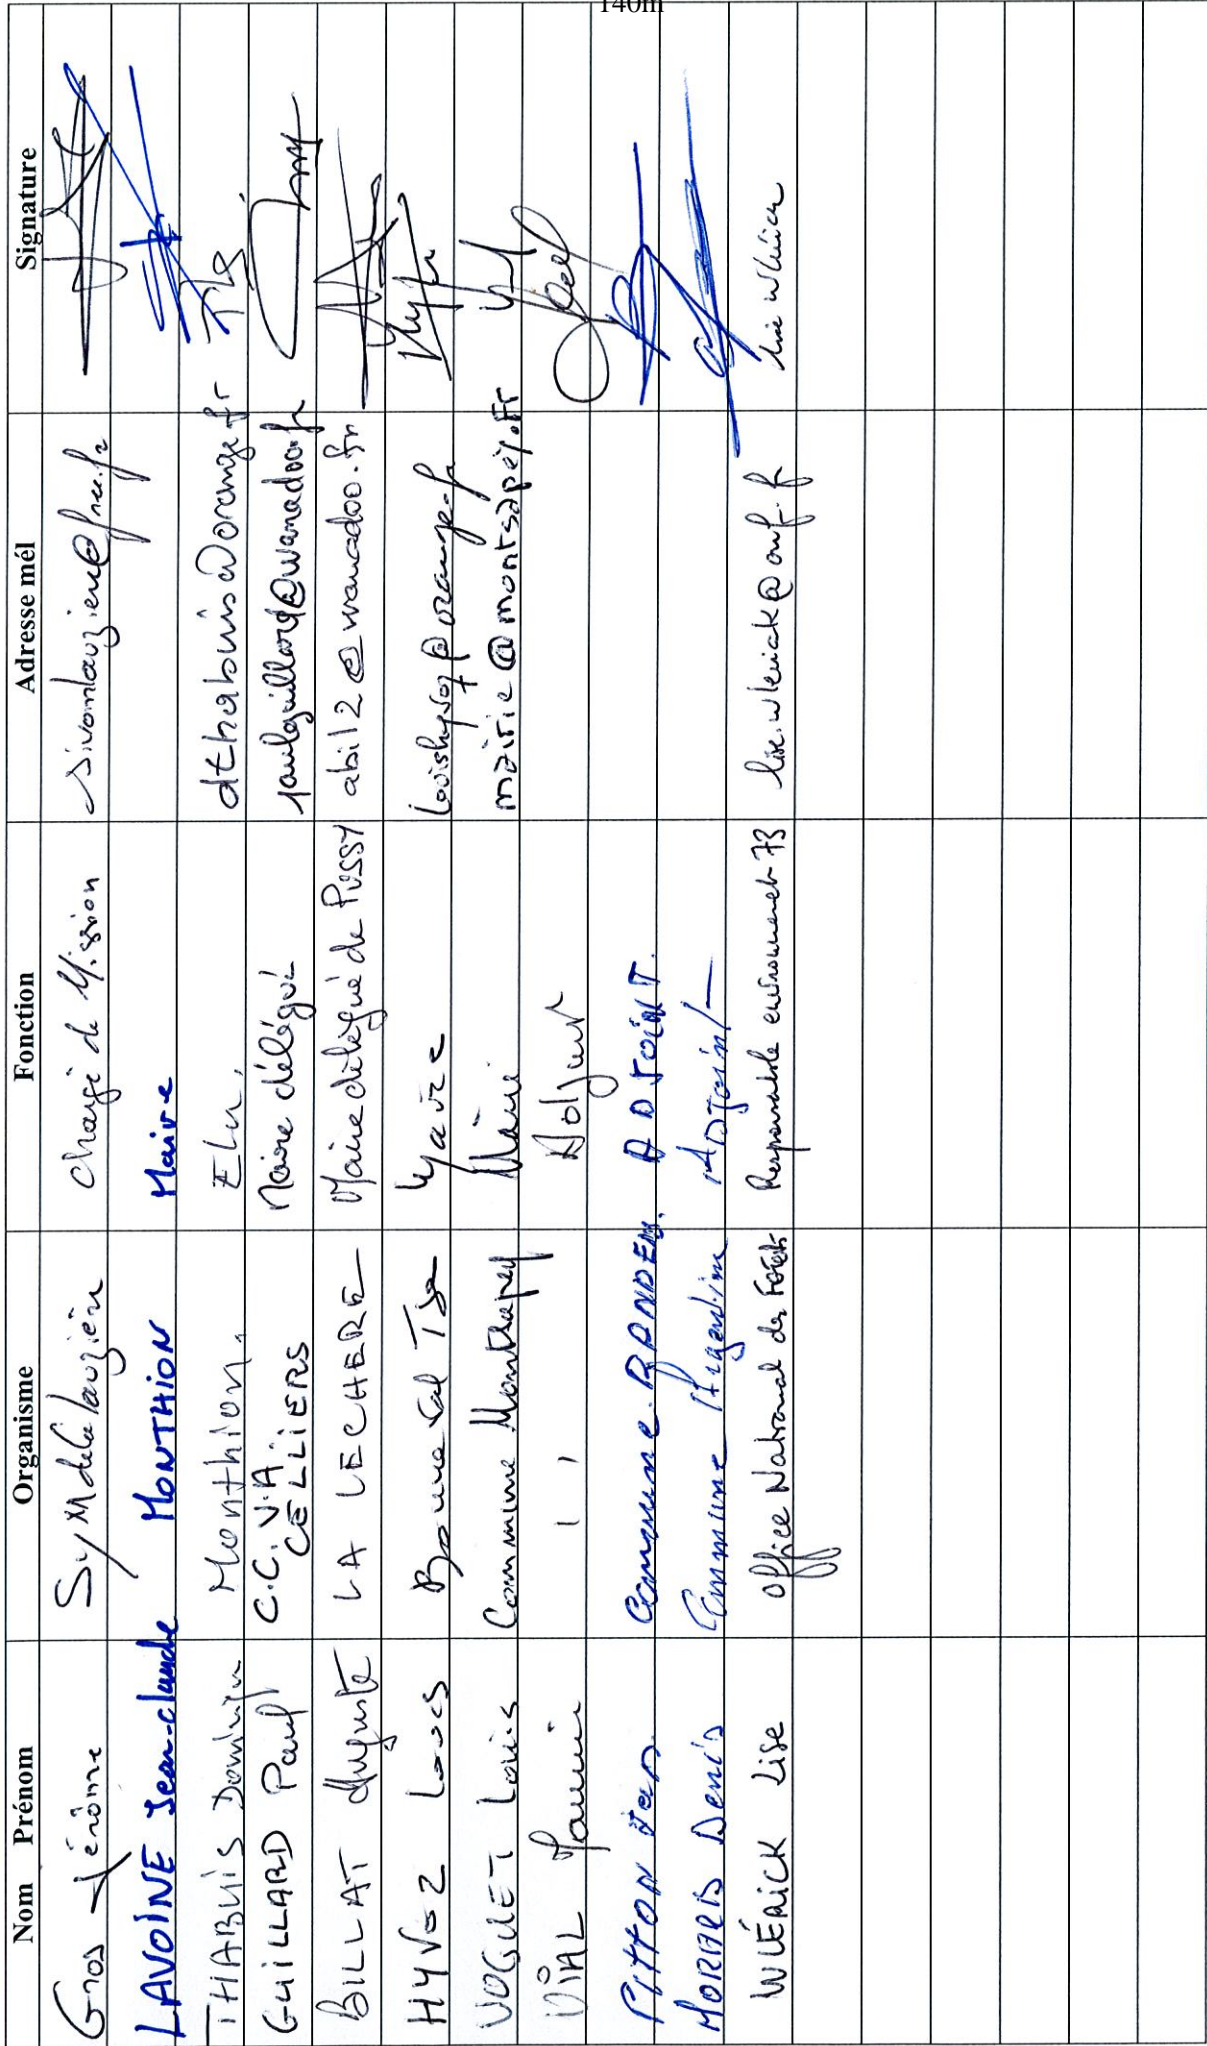 140m
Nom Prénom Organisme Fonction Adresse mél Signature
Gros Jérôme SyMdelalauzière chargé de Mission sivomlauziere@free.fr
LAVOINE Jean-claude MONTHION Maire
THABUIS Dominique Monthion, Elu, dthabuis@orange.fr
GUILLARD Paul C.C.V.A. CELLIERS Maire délégué paulguillard@wanadoo.fr
BILLAT Auguste LA LECHERE Maire délégué de PUSSY abil2@wanadoo.fr
HYVOZ Louis Bonneval Tse Maire louishyvoz@orange.fr
VOGUET Louis Commune Montsapey Maire mairie@montsapey.fr
VIAL ı ı Adjoint
PITTON Jean Commune. RANDENS. ADJOINT.
Denis Commune Argentine Adjoint
WLÉRICK Lise Office National des Forêts Responsable environnement 73 lise.wlerick@onf.fr